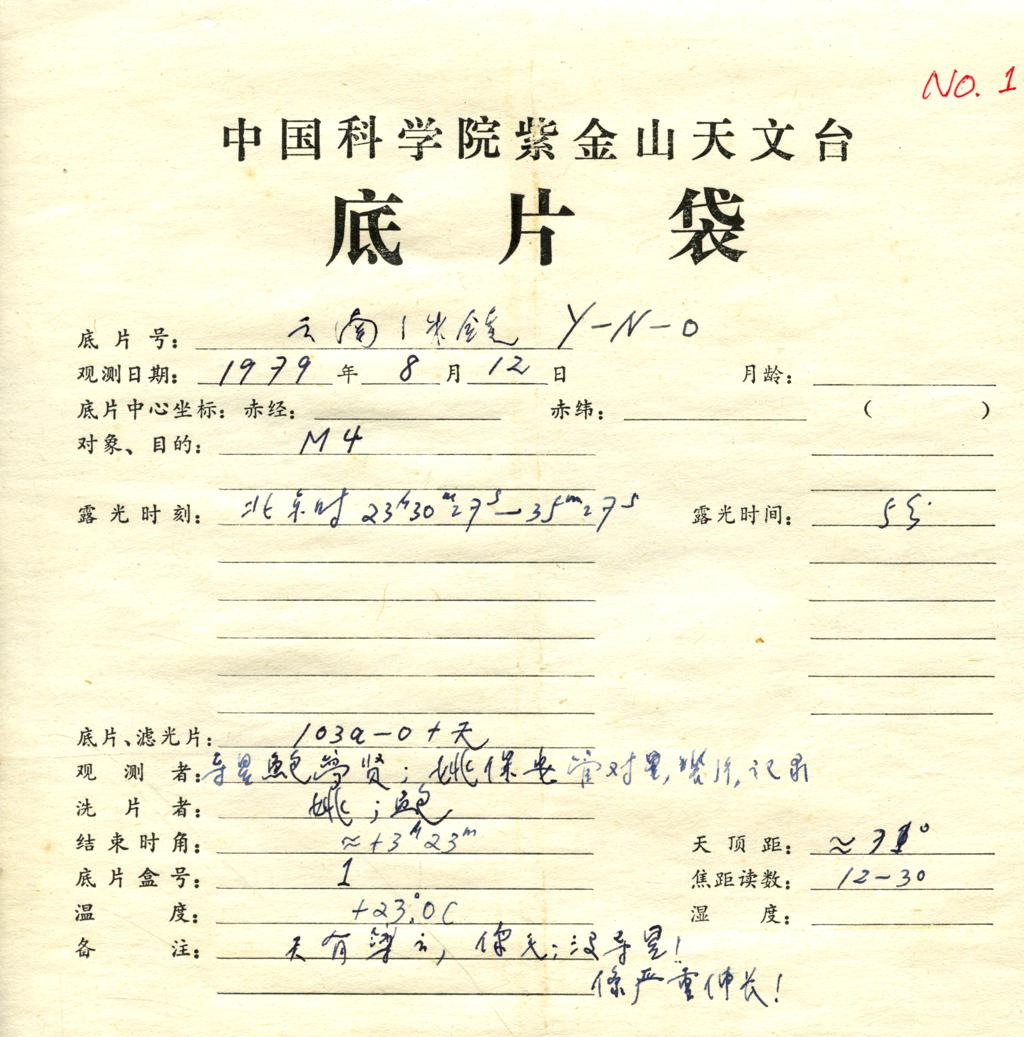 NO. 1
中国科学院紫金山天文台
底片袋
底片号： 云南1米镜 Y-N-0
观测日期： 1979 年 8 月 12 日 月龄：
底片中心坐标：赤经： 赤纬： （ ）
对象、目的： M4
露光时刻： 北京时 23h30m27s—35m27s 露光时间： 5分
底片、滤光片： 103a-0+天
观测者： 导星鲍梦贤；姚保安管对星，装片，记录
洗片者： 姚；鲍
结束时角： ≈+3h23m 天顶距： ≈71°
底片盒号： 1 焦距读数： 12-30
温度： +23.°0C 湿度：
备注： 天有薄云，像；没导星！
像严重伸长！